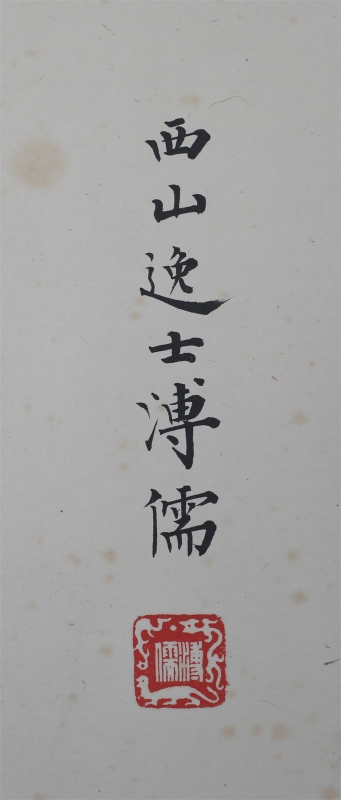 西山逸士溥儒
溥儒